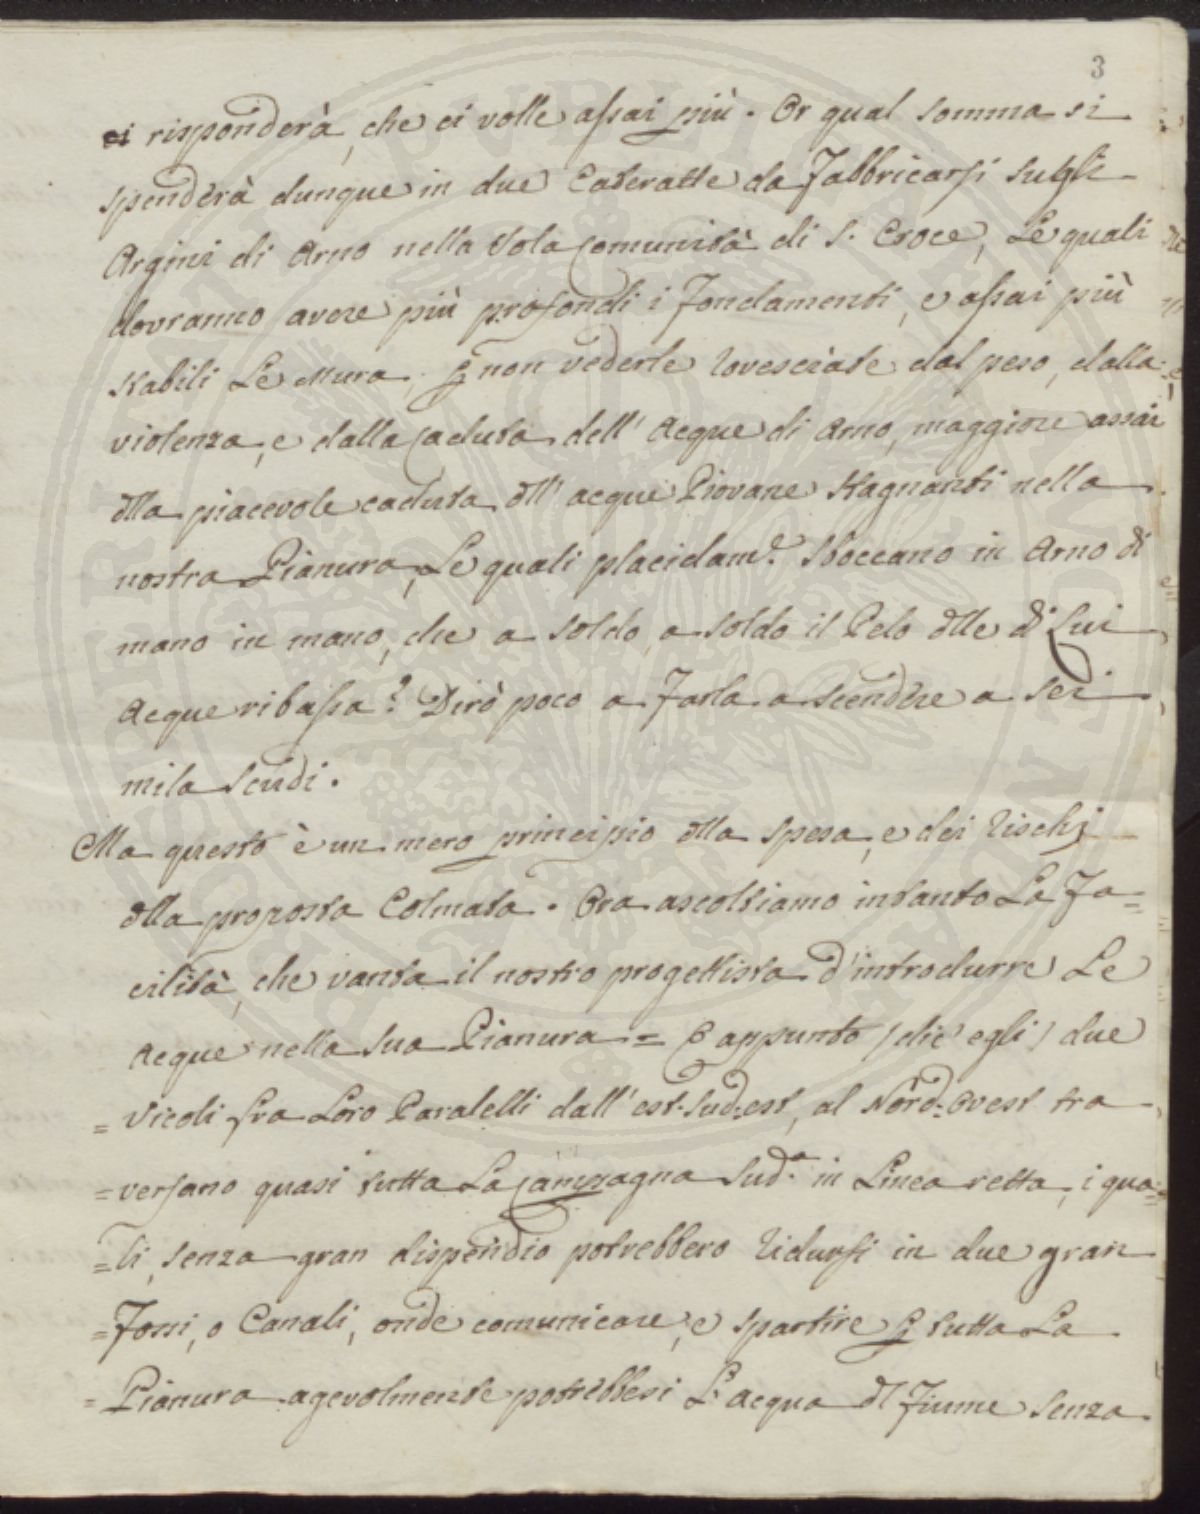 3
ci risponderà, che ci volle assai più. Or qual somma si
spenderà dunque in due Cateratte da Fabbricarsi sugli
Argini di Arno nella Sola Comunità di S. Croce, Le quali
dovranno avere più profondi i Fondamenti, e assai più
stabili Le Mura, p non vederle rovesciate dal peso, dalla
violenza, e dalla caduta dell' Acque di Arno, maggiore assai
dlla piacevole caduta dll' acque Piovane stagnanti nella
nostra Pianura, Le quali placidam.e sboccano in Arno di
mano in mano, che a soldo, a soldo il Pelo dlle di Lui
Acque ribassa? Dirò poco a Farla ascendere a sei
mila scudi.
Ma questo è un mero principio dlla spesa, e dei rischj
dlla proposta Colmata. Ora ascoltiamo intanto La Fa=
cilità, che vanta il nostro progettista d'introdurre Le
Acque nella sua Pianura = E appunto (dic' egli) due
= Vicoli fra Loro Paralelli dall' est-Sud-est, al Nord-Ovest tra
= versano quasi tutta La Campagna Sud.a in Linea retta, i qua=
= li, senza gran dispendio potrebbero ridursi in due gran
= Fossi, o Canali, onde comunicare, e spartire p tutta La
= Pianura agevolmente potrebbesi L'acqua dl Fiume senza
PUBLICAE